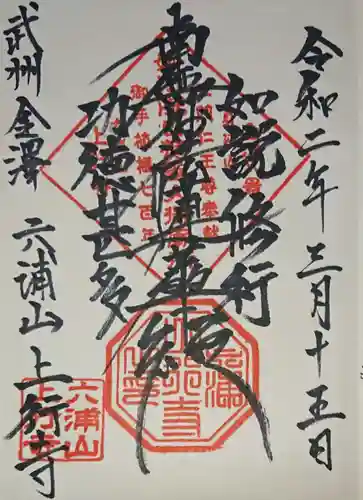 令和二年三月十五日
如説修行
南無妙法蓮華経
功徳甚多
武州金澤
六浦山上行寺
六浦山
上行寺